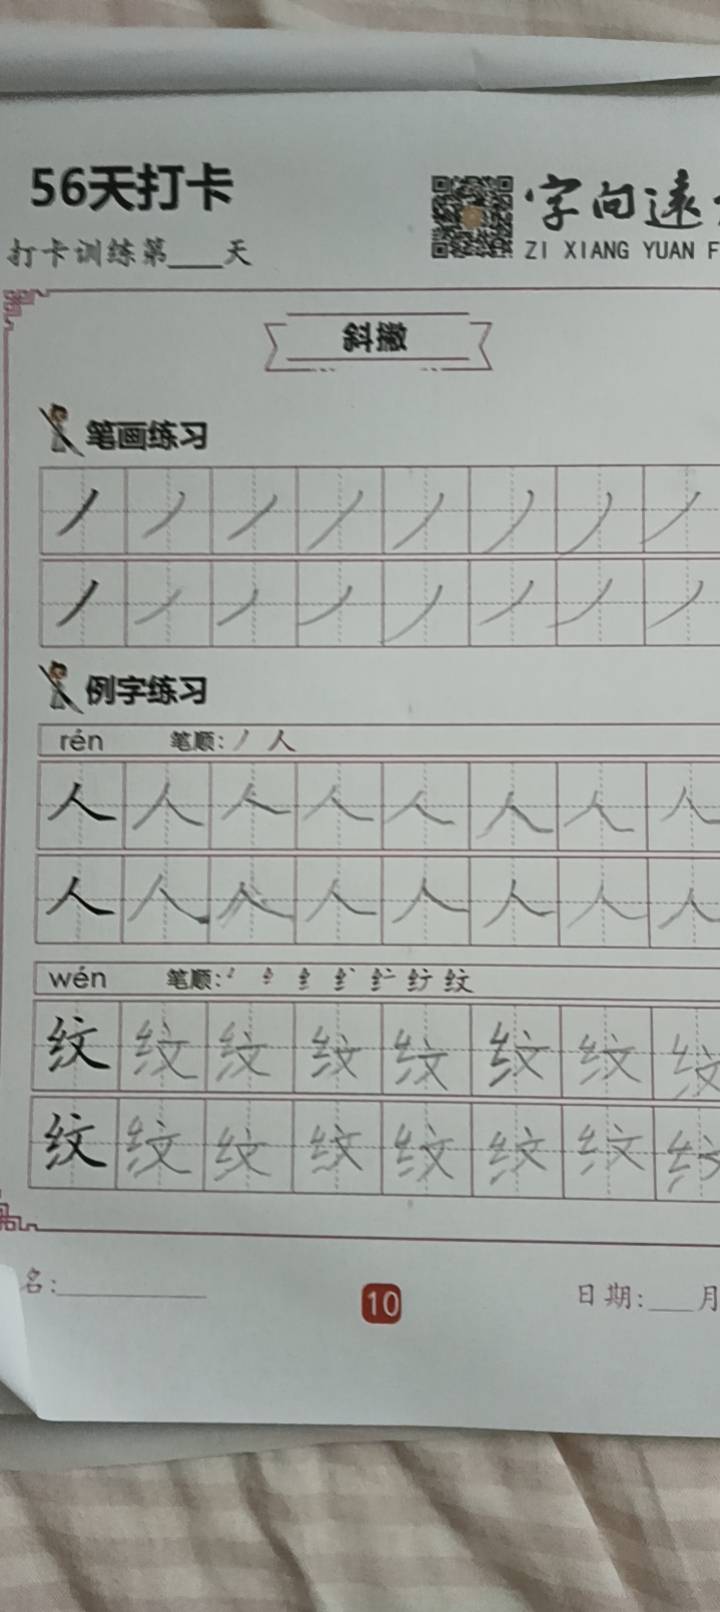 56天打卡
字向远
打卡训练第___天
ZI XIANG YUAN F
斜撇
笔画练习
丿丿丿丿丿丿丿丿
丿丿丿丿丿丿丿丿
例字练习
rén 笔顺:丿 人
人人人人人人人人
人人人人人人人人
wén 笔顺: 纹
纹纹纹纹纹纹纹纹
纹纹纹纹纹纹纹纹
名:
10
日期:___月